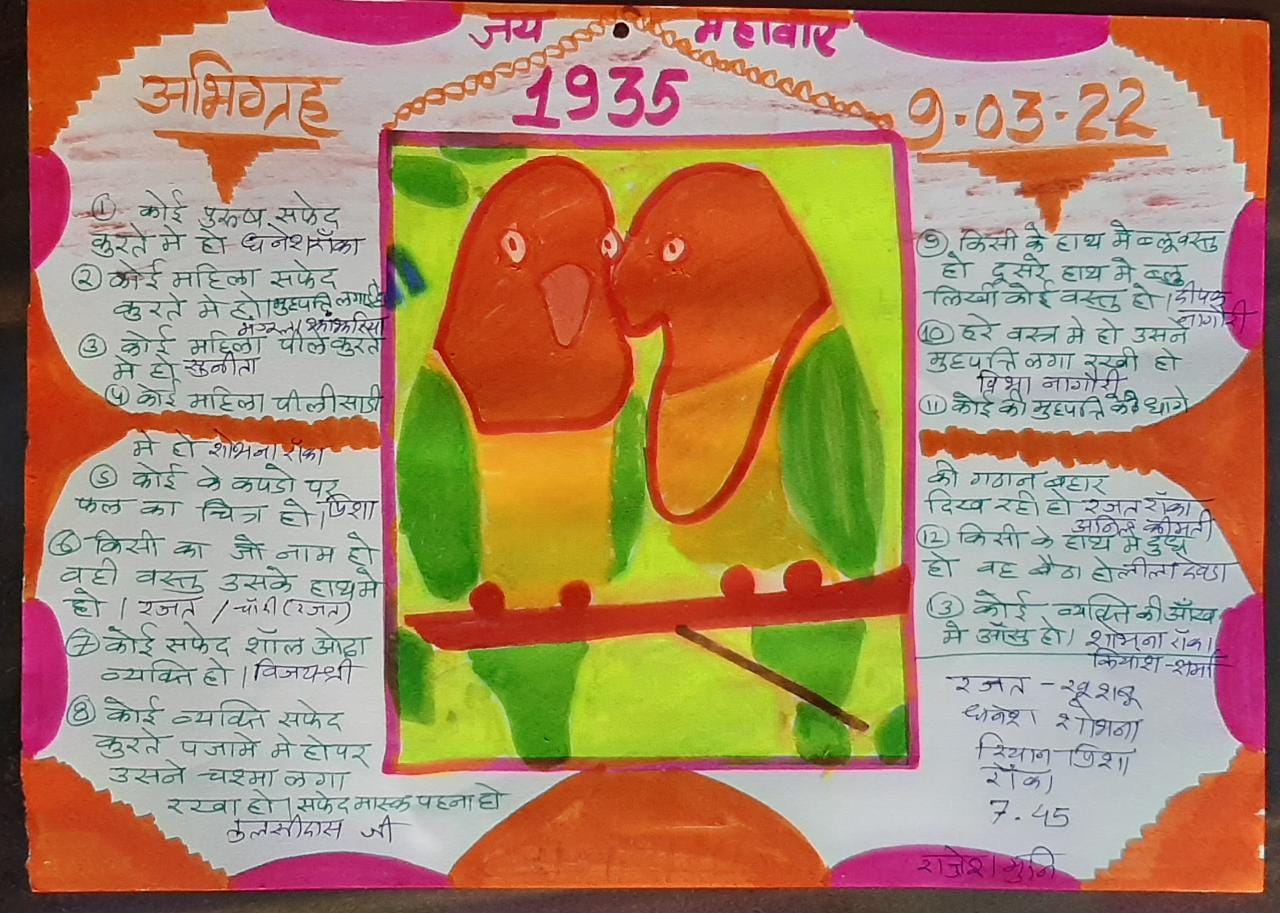 जय महावीर
अभिग्रह
1935
9-03-22
① कोई पुरुष सफेद
कुरते मे हो धनेश राँका
② कोई महिला सफेद
कुरते मे हो। मुहपत्ति लगाई हो
③ कोई महिला पीले कुरते
मे हो सुनीता
④ कोई महिला पीली साडी
मे हो शोभना राँका
⑤ कोई के कपडो पर
फल का चित्र हो। जिशा
⑥ किसी का जो नाम हो
वही वस्तु उसके हाथ मे
हो। रजत / चाँदी (रजत)
⑦ कोई सफेद शॉल ओढा
व्यक्ति हो। विजयश्री
⑧ कोई व्यक्ति सफेद
कुरते पजामे मे हो पर
उसने चश्मा लगा
रखा हो। सफेद मास्क पहना हो
तुलसीदास जी
⑨ किसी के हाथ मे ब्लू वस्तु
हो दूसरे हाथ मे ब्लु
लिखी कोई वस्तु हो। दीपक
नागौरी
⑩ हरे वस्त्र मे हो उसने
मुहपत्ति लगा रखी हो
विभा नागौरी
⑪ कोई की मुहपत्ति के धागे
की गठान बहार
दिख रही हो रजत राँका
⑫ किसी के हाथ मे दुध
हो वह बैठा हो लीला
⑬ कोई व्यक्ति की आँख
मे आँसु हो। शोभना राँका
कियाश शर्मा
रजत - खूशबू
धनेश शोभना
रियान जिशा
राँका
7.45
राजेश मुनि